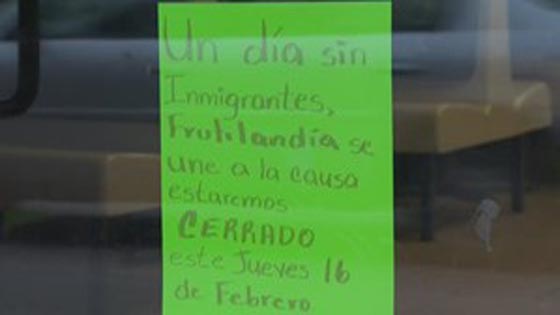 Un día sin
Inmigrantes,
Frutilandía se
une a la causa
estaremos
CERRADO
este Jueves 16
de Febrero